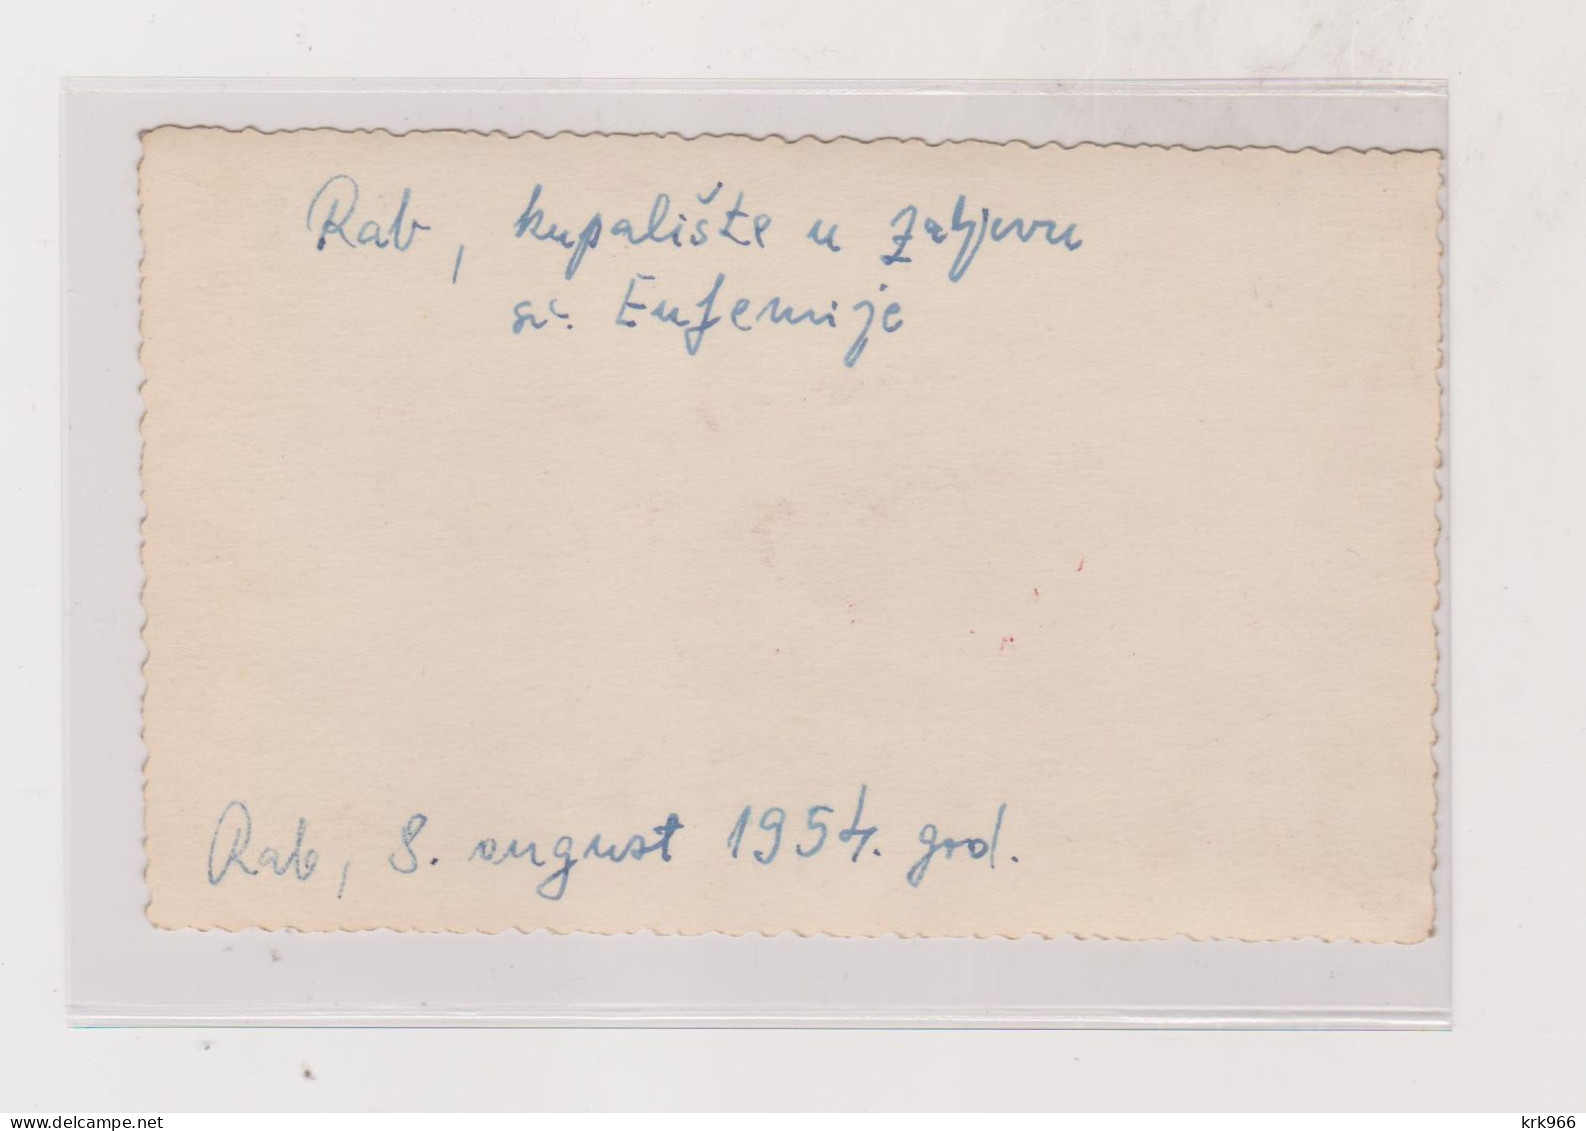 Rab, kupalište u zaljevu
sv. Eufemije
Rab, 8. august 1954. god.
www.delcampe.net
krk966